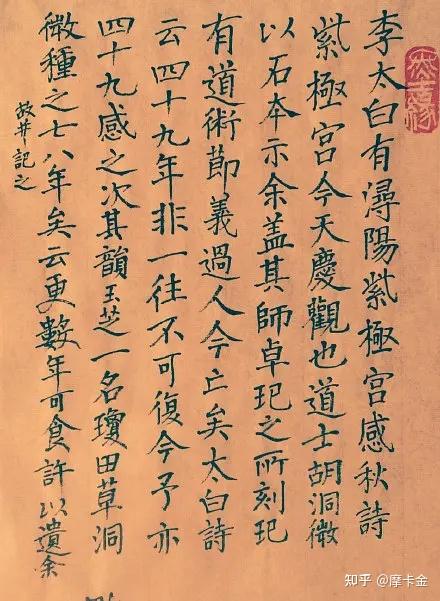 李太白有潯陽紫極宮感秋詩
紫極宮今天慶觀也道士胡洞微
以石本示余蓋其師卓玘之所刻玘
有道術節義過人今亡矣太白詩
云四十九年非一往不可復今予亦
四十九感之次其韻玉芝一名瓊田草洞
微種之七八年矣云更數年可食許以遺余
故并記之
知乎 @摩卡金